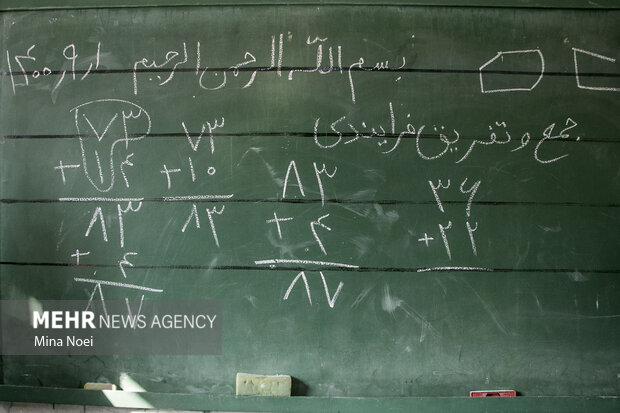 بسم الله الرحمن الرحیم ۱۴۰۰/۹/۱
جمع و تفریق فرایندی
۷۳
+ ۱۴
۸۳
+ ۴
۸۷
۷۳
+ ۱۰
۸۳
۸۳
+ ۴
۸۷
۳۶
+ ۲۲
MEHR NEWS AGENCY
Mina Noei